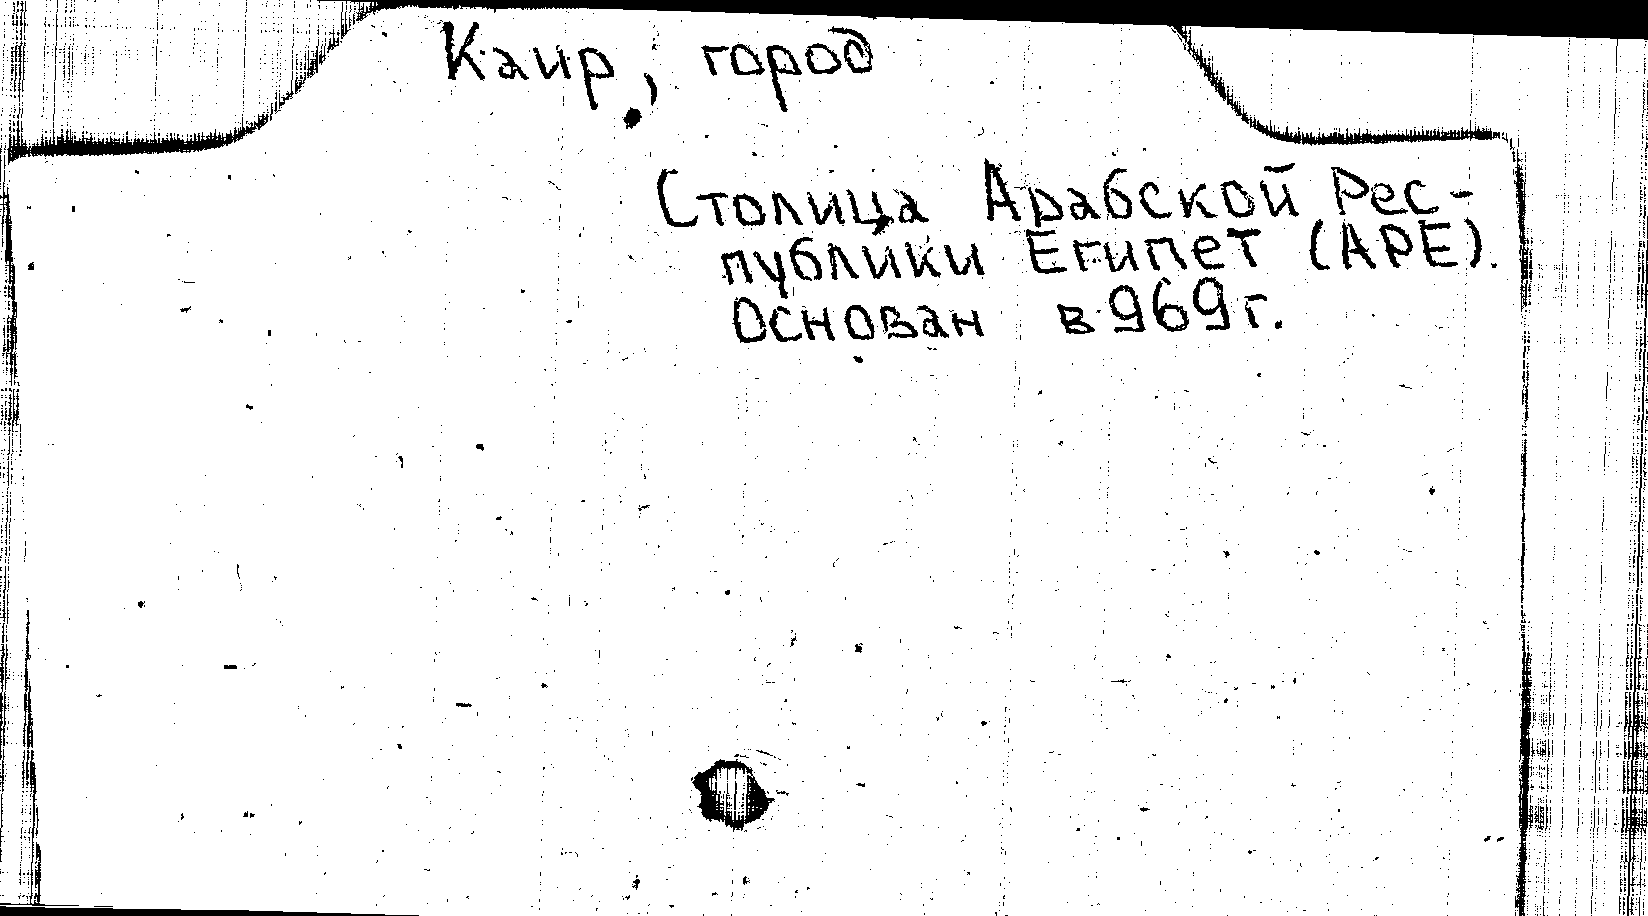 Каир, город
Столица Арабской Рес-
публики Египет (АРЕ).
Основан в 969 г.